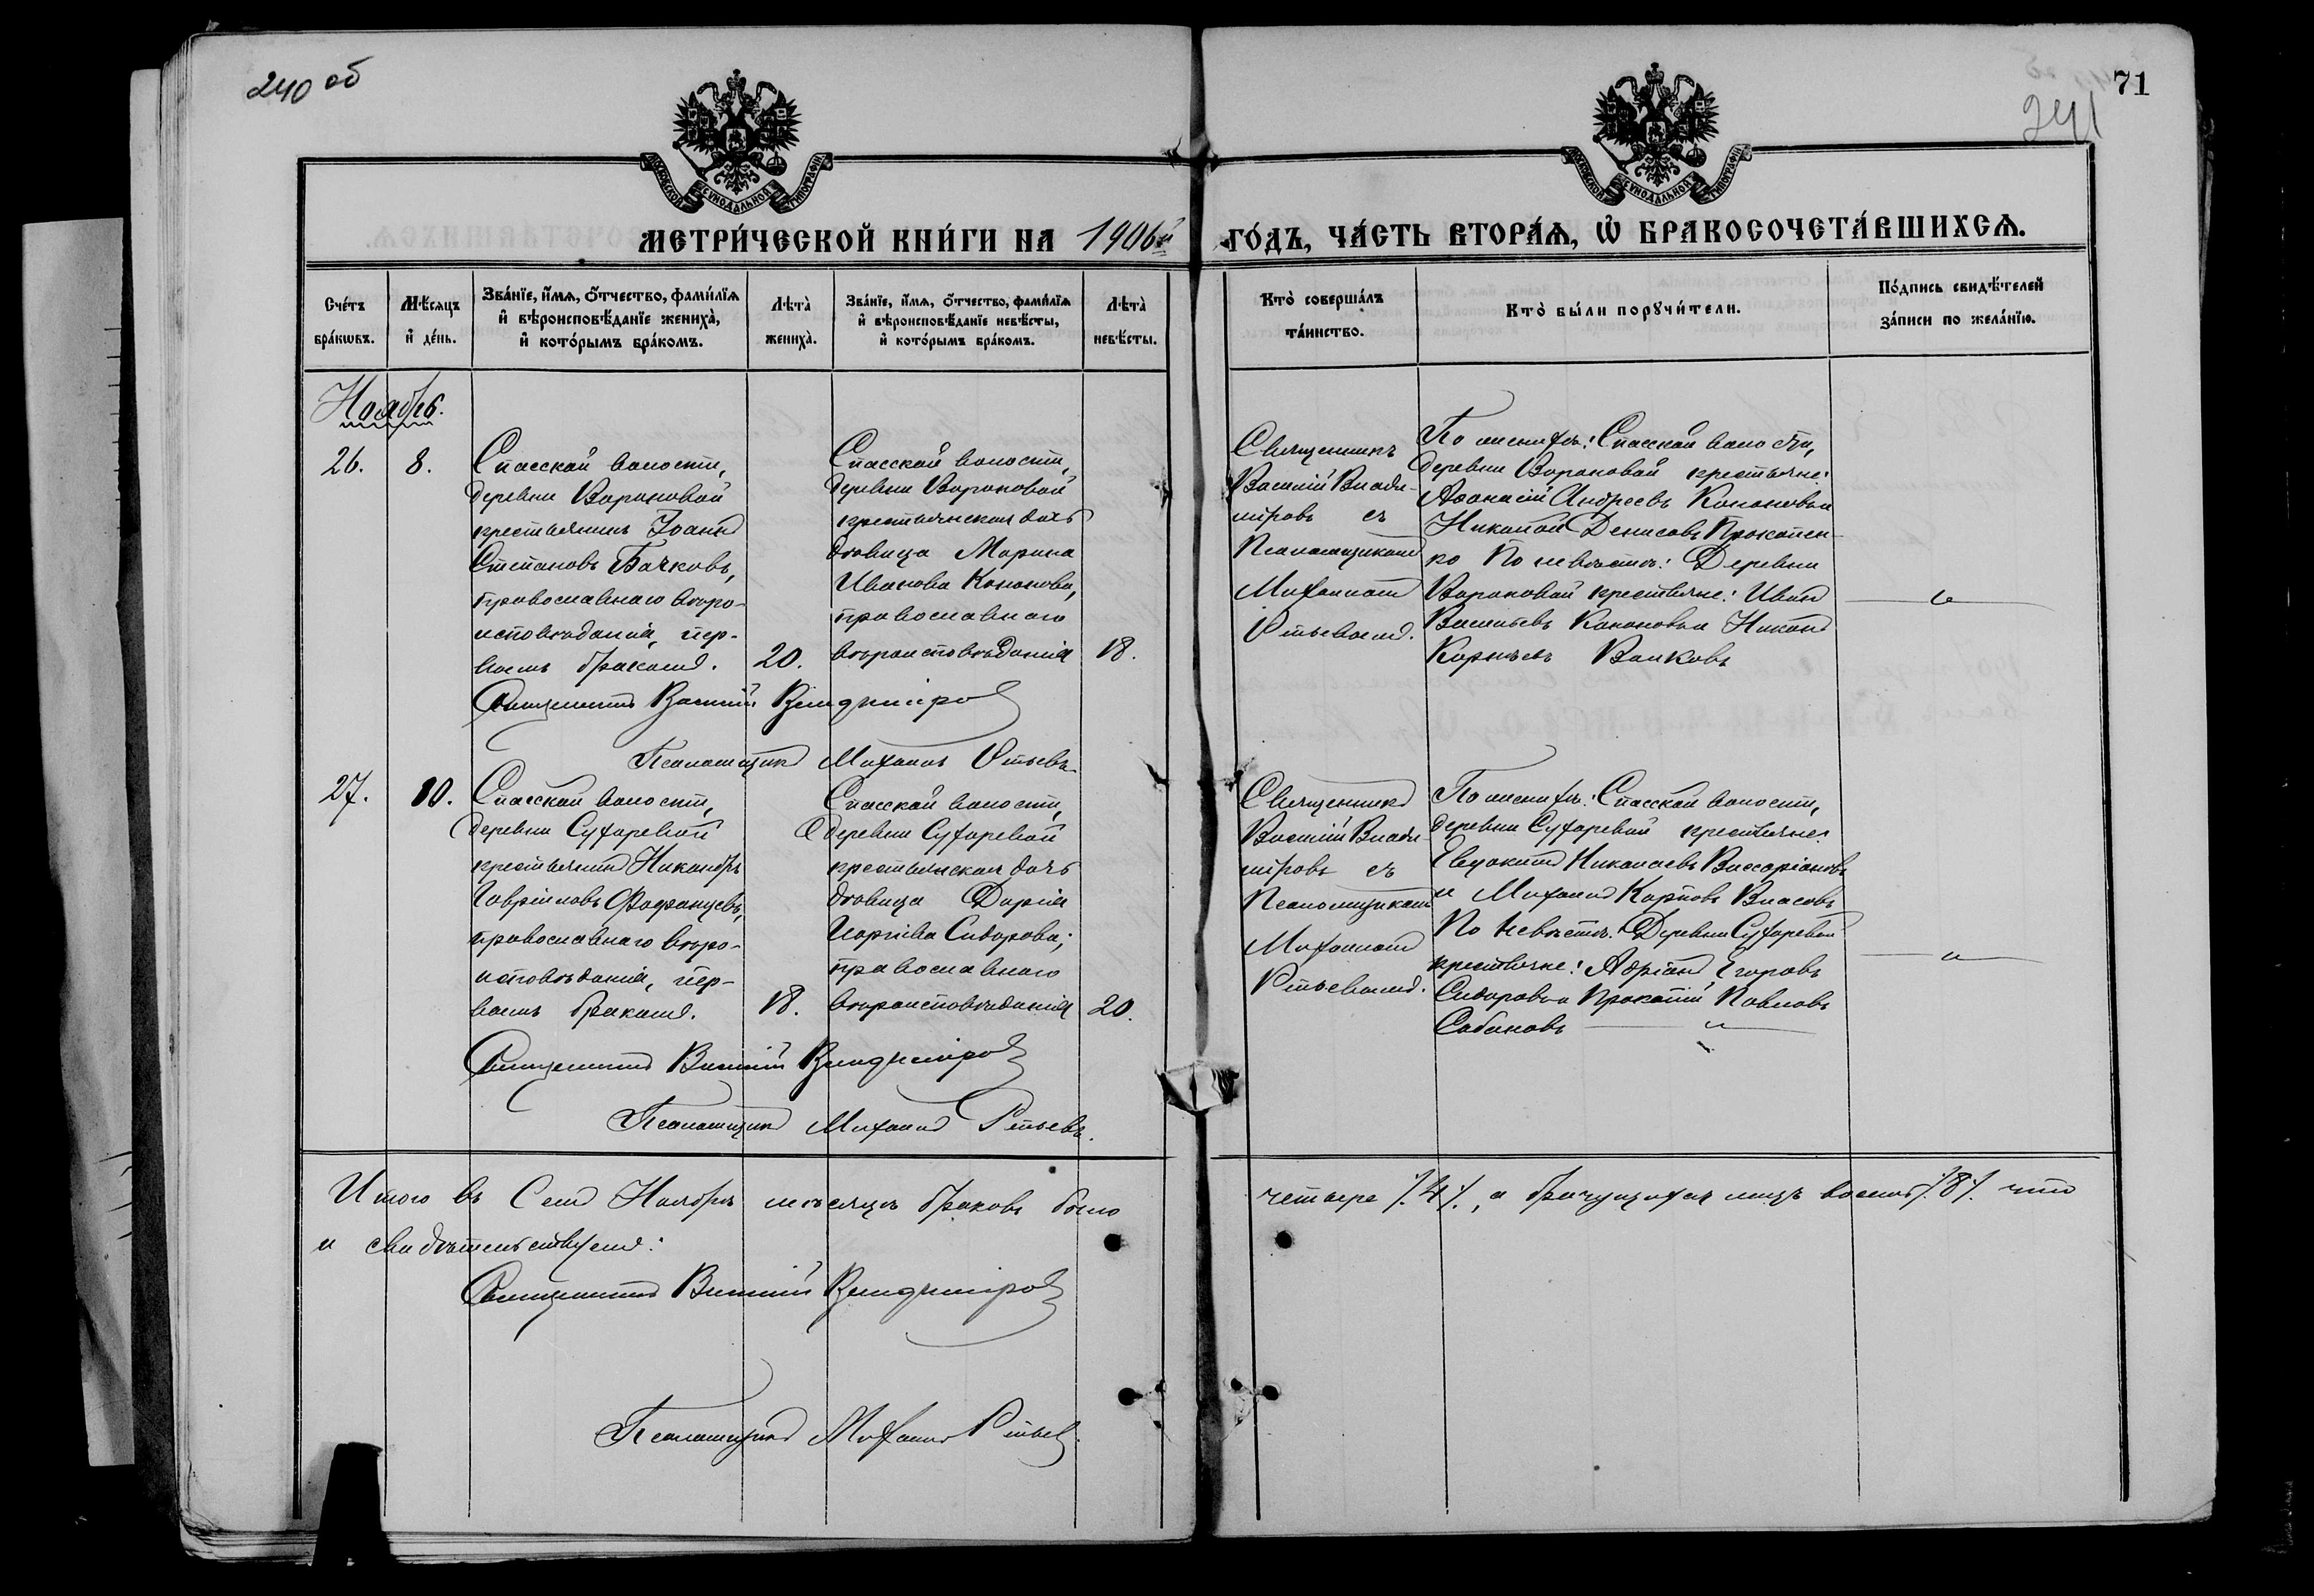 240 об
71
241
МОСКОВСКОЙ СѴНОДАЛЬНОЙ ТИПОГРАФІИ
МОСКОВСКОЙ СѴНОДАЛЬНОЙ ТИПОГРАФІИ
МЕТРИ́ЧЕСКОЙ КНИ́ГИ НА 1906й ГО́ДЪ, ЧА́СТЬ ВТОРА́Ѧ, Ѡ҆ БРАКОСОЧЕТА́ВШИХСѦ.
Сче́тъ бра́кѡвъ.
Мѣ́сѧцъ и҆ де́нь.
Зва́нїе, и҆́мѧ, ѻ҆́тчество, фами́лїѧ и҆ вѣроисповѣ́данїе жениха̀, и҆ кото́рымъ бра́комъ.
Лѣта̀ жениха̀.
Зва́нїе, и҆́мѧ, ѻ҆́тчество, фами́лїѧ и҆ вѣроисповѣ́данїе невѣ́сты, и҆ кото́рымъ бра́комъ.
Лѣта̀ невѣ́сты.
Кто̀ соверша́лъ та́инство.
Кто̀ бы́ли порꙋчи́тели.
По́дпись свидѣ́телей за́писи по жела́нїю.
Ноябрь.
26.
8.
Спасской волости,
деревни Вороновой
крестьянинъ Іоаннъ
Степановъ Бачковъ,
православнаго вѣро-
исповѣданія, пер-
вымъ бракомъ.
20.
Спасской волости,
деревни Вороновой
крестьянская дочь
дѣвица Марина
Иванова Кононова,
православнаго
вѣроисповѣданія
18.
Священникъ
Василій Влади-
міровъ съ
Псаломщикомъ
Михаиломъ
По женихѣ: Спасской волости,
деревни Вороновой крестьяне:
Аѳанасій Андреевъ Кононовъ и
Николай Денисовъ Прокопен-
ко По невѣстѣ: Деревни
Вороновой крестьяне: Иванъ
Васильевъ Кононовъ и Никонъ
Корнѣевъ Волковъ
Священникъ Василій Владиміровъ
Псаломщикъ Михаилъ
27.
10.
Спасской волости,
деревни Сухаревой
крестьянинъ Никандръ
Гавріиловъ
православнаго вѣро-
исповѣданія, пер-
вымъ бракомъ.
18.
Спасской волости,
деревни Сухаревой
крестьянская дочь
дѣвица Дарія
Сидорова;
православнаго
вѣроисповѣданія
20.
Священникъ
Василій Влади-
міровъ съ
Псаломщикомъ
Михаиломъ
По женихѣ: Спасской волости,
деревни Сухаревой крестьяне:
Николаевъ Виссаріоновъ
и Михаилъ Карповъ Власовъ
По невѣстѣ: Деревни Сухаревой
крестьяне: Адріанъ Егоровъ
Сидоровъ и Прокопій Павловъ
Сабановъ
Священникъ Василій Владиміровъ
Псаломщикъ Михаилъ
Итого въ Семъ Ноябрѣ мѣсяцѣ браковъ было четыре /.4/., а брачущихся лицъ восемь /.8/. что
и свидѣтельствуемъ:
Священникъ Василій Владиміровъ
Псаломщикъ Михаилъ